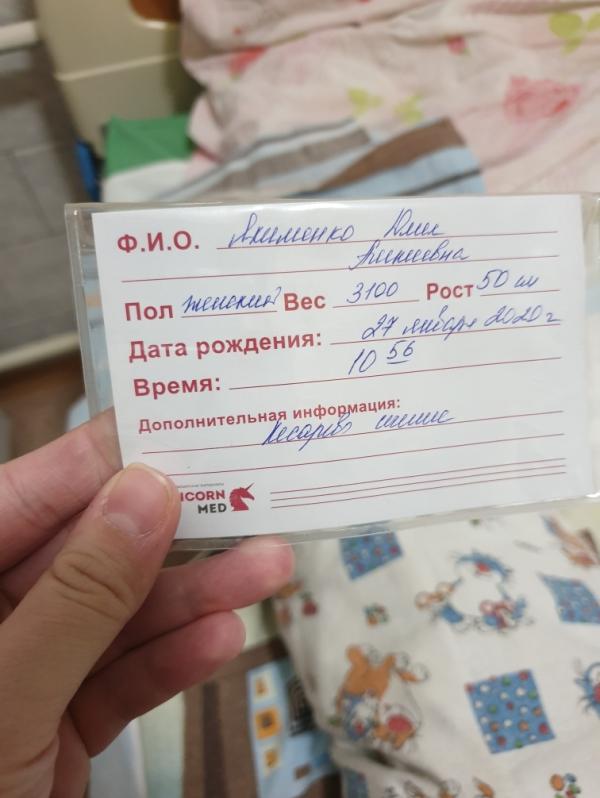 Ф.И.О. Якименко Юлия
Пол женский Вес 3100 Рост 50 см
Дата рождения: 27 января 2020 г
Время: 10 56
Дополнительная информация:
Кесарево
ICORN
MED